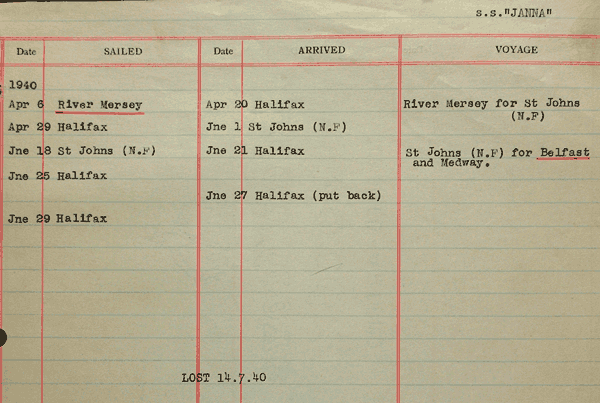 s.s."JANNA"
Date SAILED Date ARRIVED VOYAGE
1940
Apr 6 River Mersey Apr 20 Halifax River Mersey for St Johns
(N.F)
Apr 29 Halifax Jne 1 St Johns (N.F)
Jne 18 St Johns (N.F) Jne 21 Halifax St Johns (N.F) for Belfast
and Medway.
Jne 25 Halifax
Jne 27 Halifax (put back)
Jne 29 Halifax
LOST 14.7.40